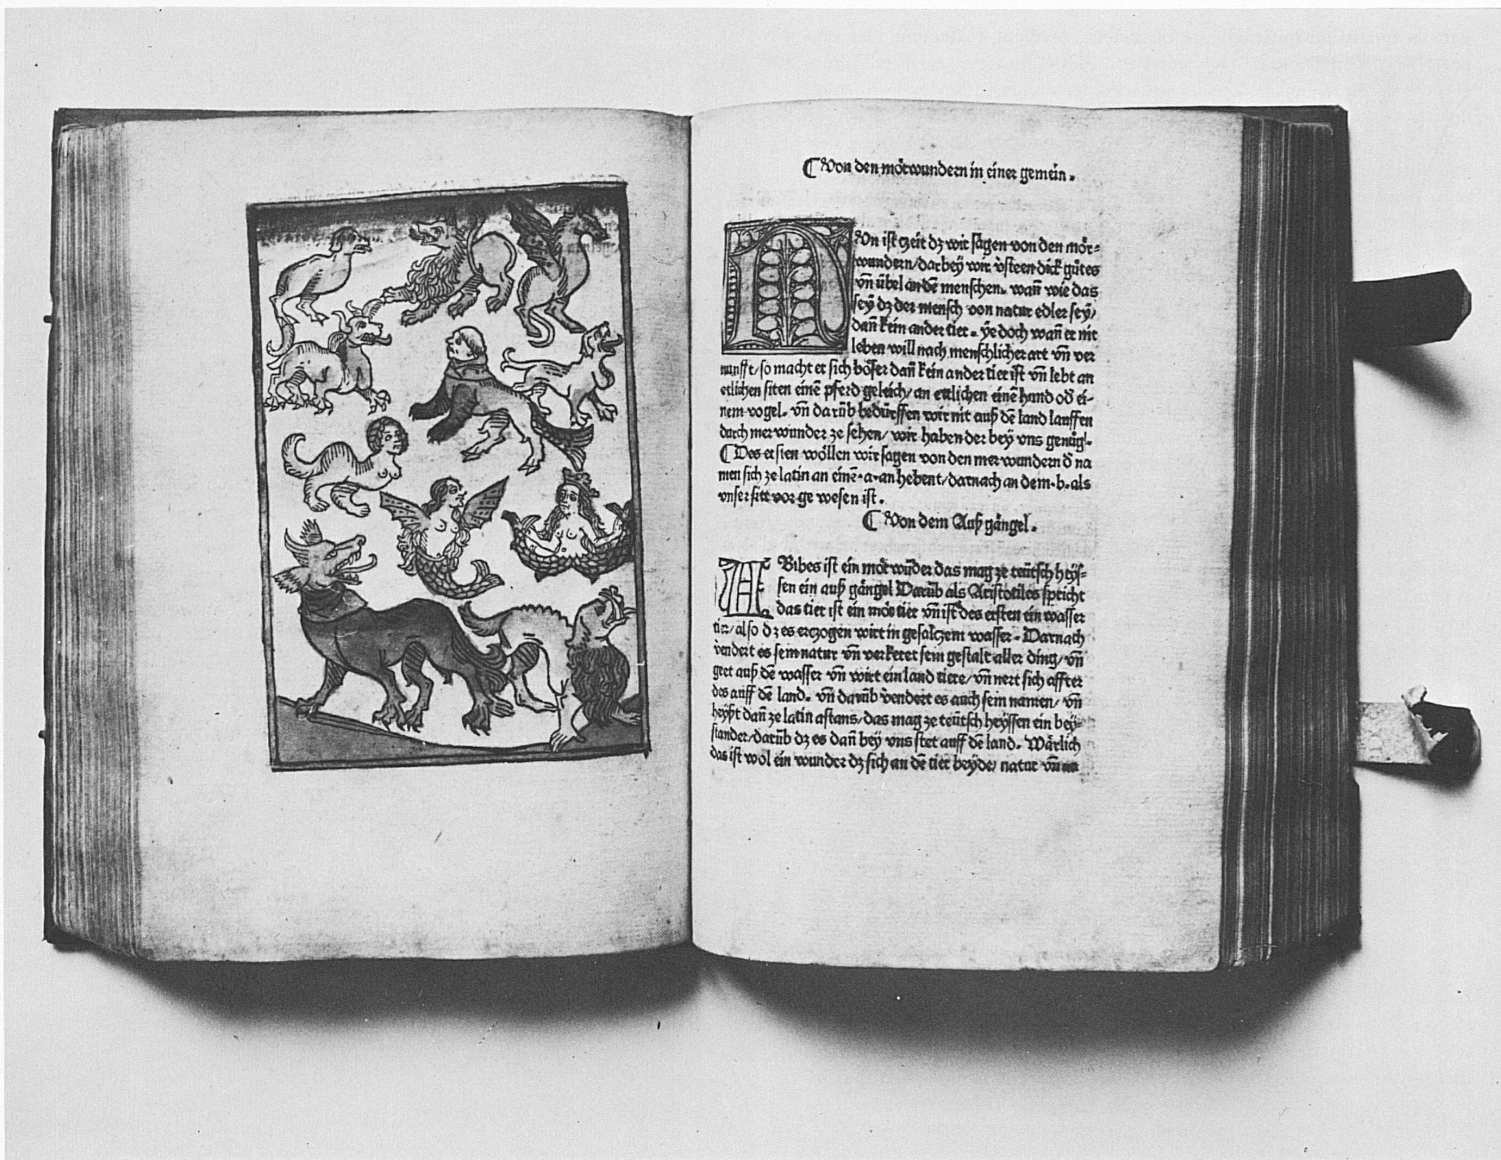 ¶ Von den mörwundern in einer gemein.
NVn ist czeit dz wir sagen von den mör-
wundern/dar bey wir vͤsteen dick gůtes
vn̄ übel an dē menschen. wañ wie das
seÿ dz der mensch von natur edler seÿ/
dañ kein ander tier. ÿe doch wañ er nit
leben will nach menschlicher art vn̄ ver
nunfft/so macht er sich böser dañ kein ander tier ist vn̄ lebt an
etlichen siten einē pferd geleich/an ettlichen einē hund od̄ ei-
nem vogel. vn̄ darüb bedürffen wir nit auß dē land lauffen
durch mer wunder ze sehen/wir haben der bey vns genůg.
¶ Des ersten wöllen wir sagen von den mer wundern d̄ na
men sich ze latin an einē .a. an hebent/darnach an dem .b. als
vnser sitt vor ge wesen ist.
¶ Von dem Auß gängel.
ABibes ist ein mör wūder das mag ze teütsch heÿs-
sen ein auß gängel Darüb als Aristotiles spricht
das tier ist ein mös tier vn̄ ist des ersten ein wasser
tir/also dz es erczogen wirt in gesalczem wasser. Darnach
vendert es sein natur vn̄ verkeret sein gestalt aller ding/vn̄
geet auß dē wasser vn̄ wirt ein land tiere/vn̄ nert sich affter
des auff dē land. vn̄ darüb vendert es auch sein namen/vn̄
heÿßt dañ ze latin astans/das mag ze teütsch heÿssen ein beÿ-
stander/darüb dz es dañ beÿ vns stet auff dē land. Wärlich
das ist wol ein wunder dz sich an dē tier beÿde/natur vn̄